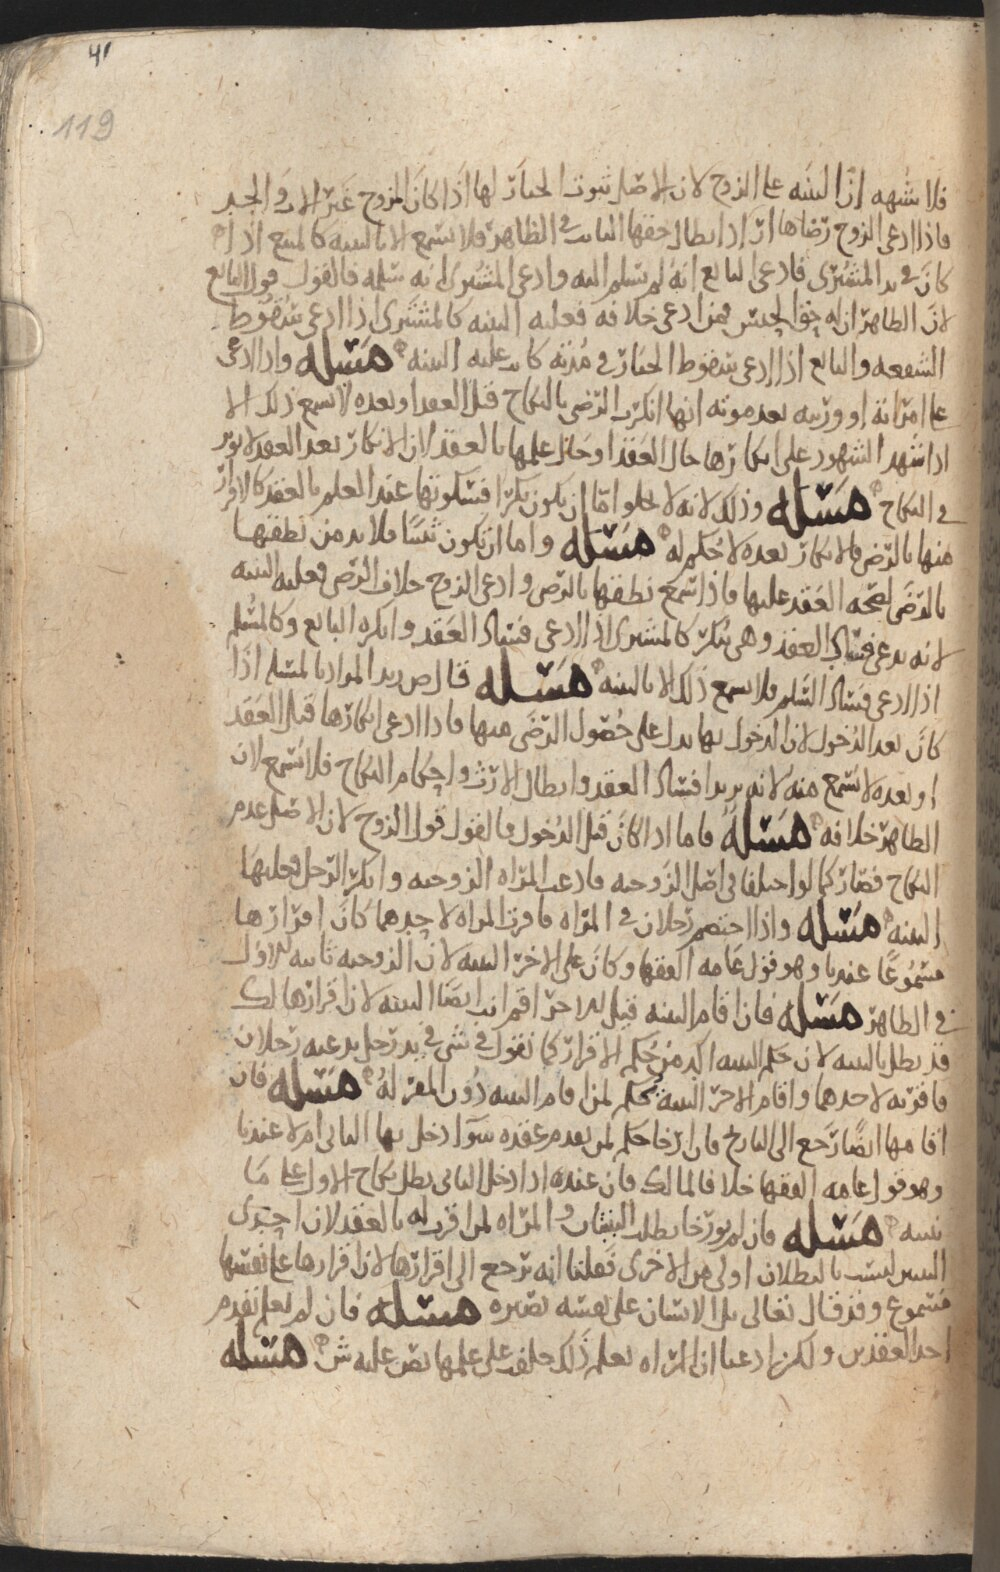 41
119
فلا شبهه ان البينه على الزوج لان الاصل ثبوت الخيار لها اذا كان المزوج غير الاب والجد
فاذا ادعى الزوج رضاها اراد ابطال حقها الثابت في الظاهر فلا يسمع الا بالبينه كالمبيع اذا
كان في يد المشتري فادعى البايع انه لم يسلم اليه وادعى المشتري انه سلمه فالقول قول البايع
لان الظاهر ان له حق الحبس فمن ادعى خلافه فعليه البينه كالمشتري اذا ادعى سقوط
الشفعه والبايع اذا ادعى سقوط الخيار في مدته كانت عليه البينه مسله واذا ادعى
على امراته او ورثته بعد موته انها انكرت الرضى بالنكاح قبل العقد او بعده لا يسمع ذلك الا
اذا شهد الشهود على انكارها حال العقد او حال علمها بالعقد لان الانكار بعد العقد لا يوثر
في النكاح مسله وذلك لانه لا يخلوا اما ان يكون بكرا فسكوتها عند العلم بالعقد كالاقرار
منها بالرضى فالانكار بعده لا حكم له مسله واما ان تكون ثيبا فلا بد من نطقها
بالرضى لصحه العقد عليها فاذا سمع نطقها بالرضى وادعى الزوج خلاف الرضى فعليه البينه
لانه يدعى فساد العقد وهي تنكر كالمشتري اذا ادعى فساد العقد وانكره البايع وكالمسلم
اذا ادعى فساد السلم فلا يسمع ذلك الا بالبينه مسله قال ص زيد المراد بالمسله اذا
كان بعد الدخول لان الدخول بها يدل على حصول الرضى منها فاذا ادعى انكارها قبل العقد
او بعده لا يسمع منه لانه يريد افساد العقد وابطال الارث واحكام النكاح فلا يسمع لان
الظاهر خلافه مسله فاما اذا كان قبل الدخول فالقول قول الزوج لان الاصل عدم
النكاح فصار كما لو اختلفا في اصل الزوجيه فادعت المراه الزوجيه وانكر الرجل فعليها
البينه مسله واذا اختصم رجلان في المراه فاقرت المراه لاحدهما كان اقرارها
مسموعا عندنا وهو قول عامه الفقها وكان على الاخر البينه لان الزوجيه ثابته للاول
في الظاهر مسله فان اقام البينه قيل للاخر اقم انت ايضا البينه لان اقرارها لك
قد بطل بالبينه لان حكم البينه اكد من حكم الاقرار كما نقول في شي في يد رجل يدعيه رجلان
فاقر به لاحدهما واقام الاخر البينه يحكم لمن اقام البينه دون المقر له مسله فان
اقامها ايضا رجع الى التاريخ فان ارخا حكم لمن تقدم عقده سوا دخل بها الثاني ام لا عندنا
وهو قول عامه الفقها خلافا لمالك فان عنده اذا دخل الثاني بطل نكاح الاول على ما
نبينه مسله فان لم يورخا بطلت البينتان والمراه لمن اقرت له بالعقد لان احدى
البينتين ليست بالبطلان اولى من الاخرى فعلنا انه يرجع الى اقرارها لان اقرارها على نفسها
مسموع وقد قال تعالى بل الانسان على نفسه بصيره مسله فان لم يعلم تقدم
احد العقدين ولكن ادعيا ان المراه تعلم ذلك حلفت على علمها نص عليه ش مسله